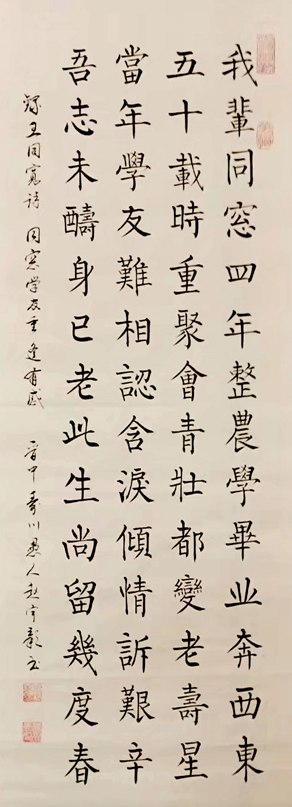 我輩同窓四年整農學畢业奔西東
五十載時重聚會青壯都變老壽星
當年學友難相認含淚傾情訴艱辛
吾志未酬身已老此生尚留幾度春
録王同寬诗 同窓学友重逢有感 晋中寿川愚人赵宇彰书